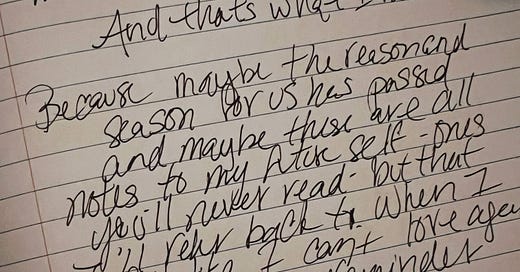 And that's what
Because maybe the reason and
season for us has passed
and maybe these are all
notes to my future self - ones
you'll never read - but that
I'll refer back to. When I
can't love again
reminder